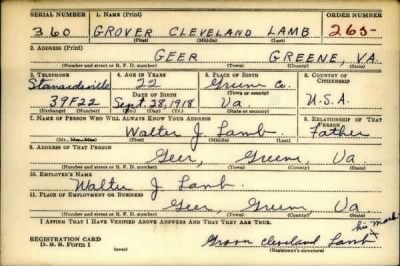 SERIAL NUMBER 1. NAME (Print) ORDER NUMBER
360 GROVER CLEVELAND LAMB 265-
(First) (Middle) (Last)
2. ADDRESS (Print)
GEER GREENE, VA.
(Number and street or R. F. D. number) (Town) (County) (State)
3. TELEPHONE 4. AGE IN YEARS 5. PLACE OF BIRTH 6. COUNTRY OF CITIZENSHIP
Stanardsville 22 Greene Co.
DATE OF BIRTH (Town or county)
39F22 Sept. 28, 1918 Va. U.S.A.
(Exchange) (Number) (Mo.) (Day) (Yr.) (State or country)
7. NAME OF PERSON WHO WILL ALWAYS KNOW YOUR ADDRESS 8. RELATIONSHIP OF THAT PERSON
Walter J. Lamb. Father
(Mr., Mrs., Miss) (First) (Middle) (Last)
9. ADDRESS OF THAT PERSON
Geer, Greene, Va
(Number and street or R. F. D. number) (Town) (County) (State)
10. EMPLOYER'S NAME
Walter J Lamb.
11. PLACE OF EMPLOYMENT OR BUSINESS
Geer, Greene, Va.
(Number and street or R. F. D. number) (Town) (County) (State)
I AFFIRM THAT I HAVE VERIFIED ABOVE ANSWERS AND THAT THEY ARE TRUE.
his mark
REGISTRATION CARD Grover Cleveland Lamb X
D. S. S. Form 1 (over) (Registrant's signature)